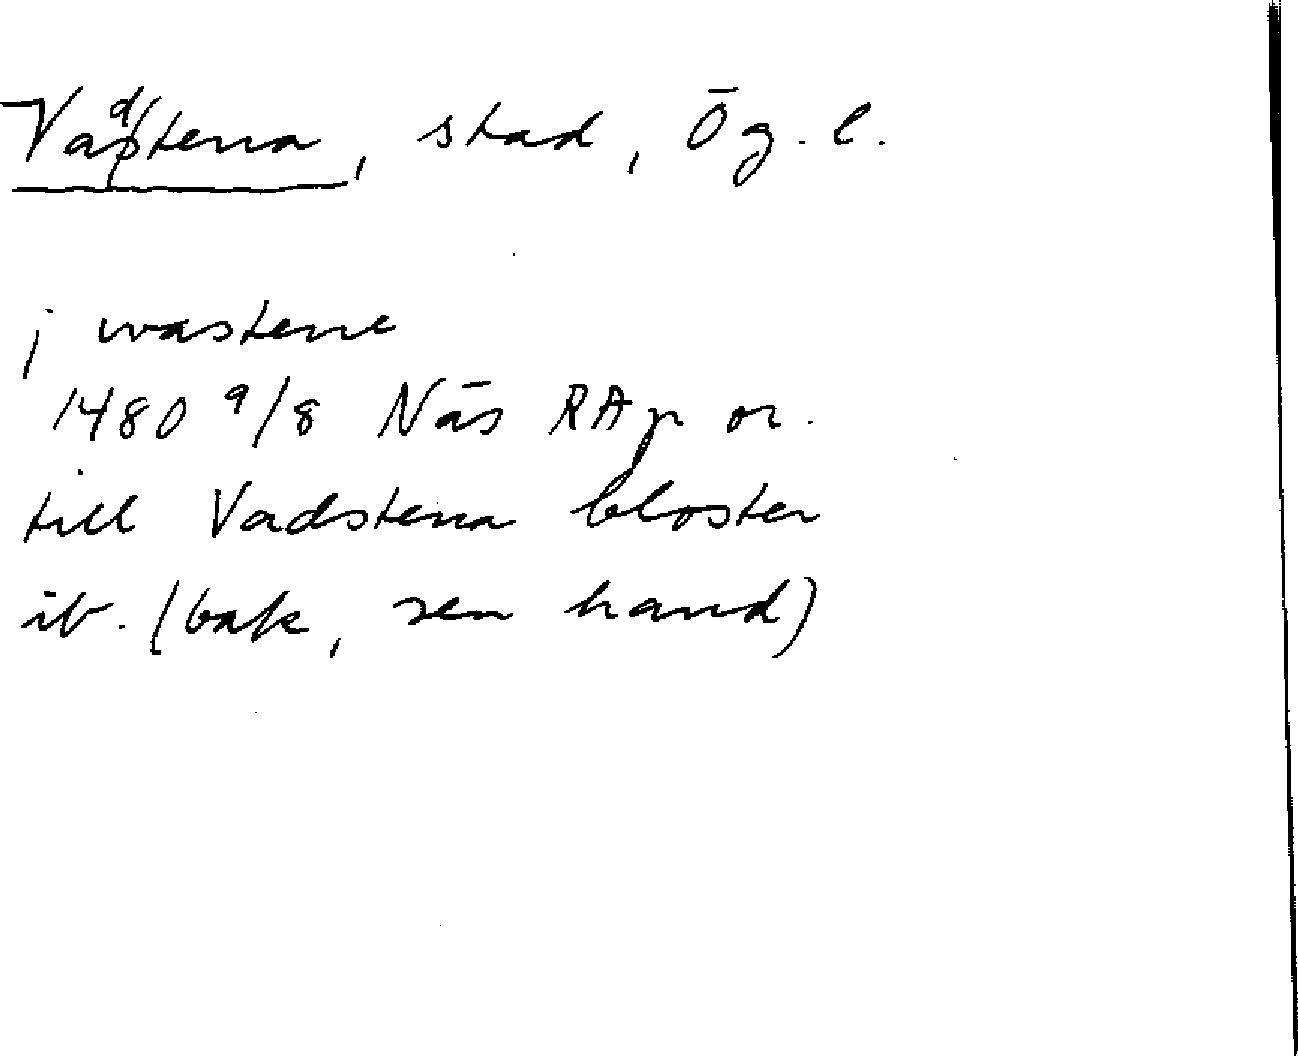 Vadstena, stad, Ög. l.
j wastene
1480 9/8 Näs RAp or.
till Vadstena closter
ib. (bak, sen hand)